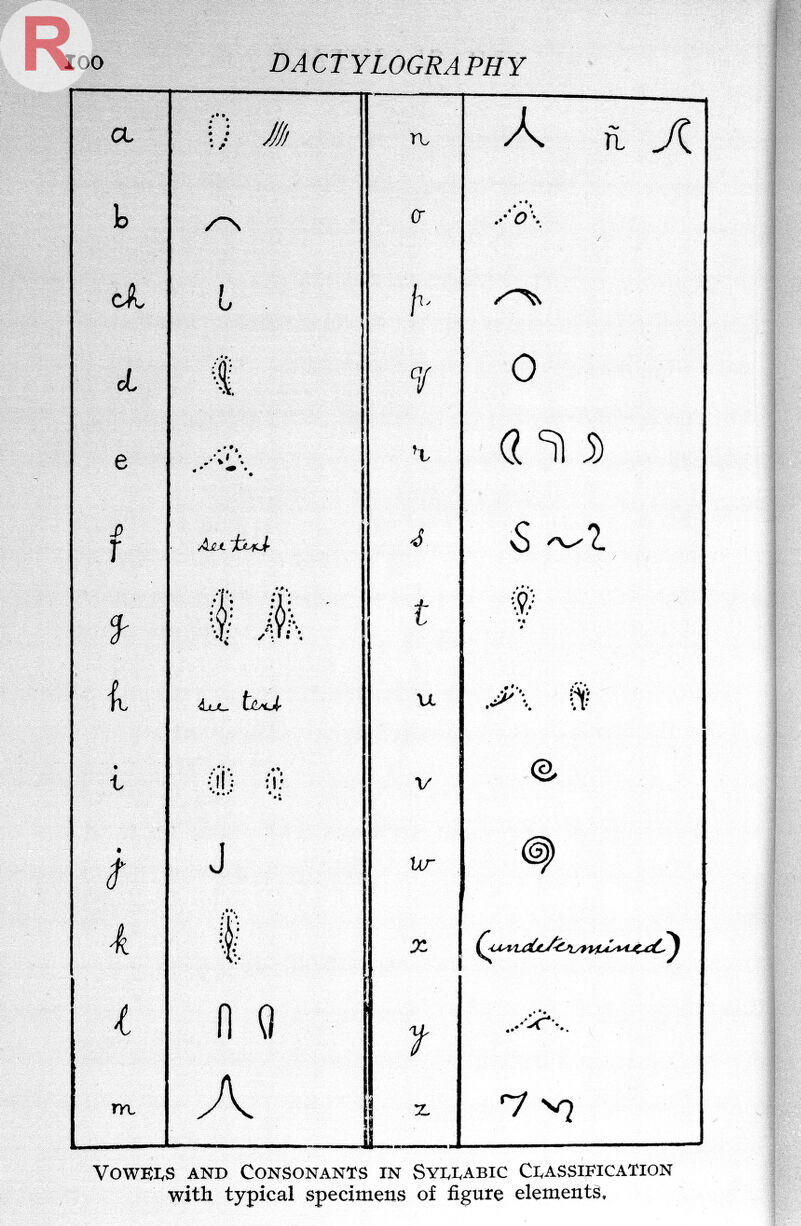 R
100 DACTYLOGRAPHY
a n ñ
b o
ch p
d q
e r
f see text s
g t
h see text u
i v
j w
k x (undetermined)
l y
m z
VOWELS AND CONSONANTS IN SYLLABIC CLASSIFICATION
with typical specimens of figure elements.